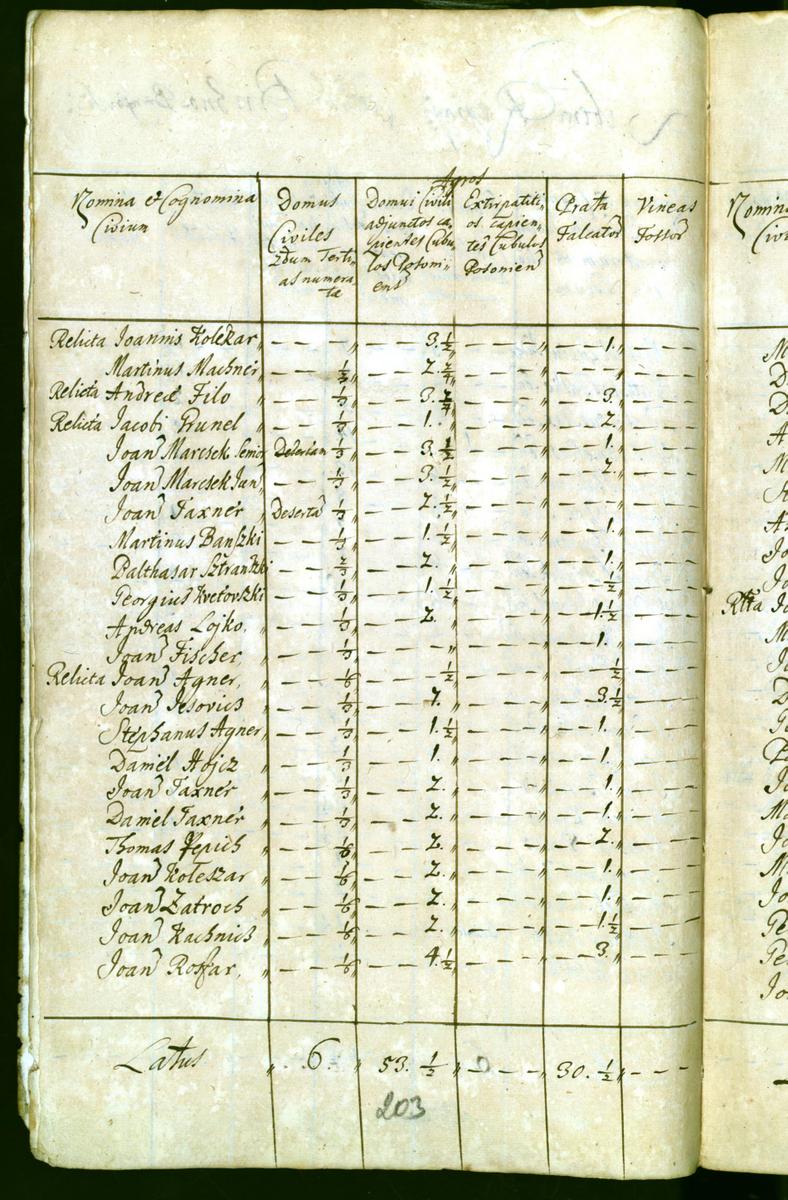 Agros
Nomina et Cognomina Civium
Domus Civiles 2dum Tertias numeratae
Domui Civili adjunctos capientes Cubulos Posoniens
Extirpatitios capientes Cubulos Posonien
Prata Falcator
Vineas Fossor
Relicta Joannis Kolekar — — — 3. 1/2 — — — 1. — — —
Martinus Machner — — 1/3 — — 2. 2/4 — — — — — — — — —
Relicta Andreæ Filo — — 1/3 — — 3. 2/4 — — — — — 3. — — —
Relicta Jacobi Prunel — — 1/3 — — 1. — — — — — 2. — — —
Joan Marcsek Senior Desertam 1/3 — — 3. 1/2 — — — — — 1. — — —
Joan Marcsek Jun — — 1/3 — — 3. 1/2 — — — — — 2. — — —
Joan Taxner Deserta 1/3 — — 2. 1/2 — — — — — — — — —
Martinus Banszki — — 1/3 — — 1. 1/2 — — — — — 1. — — —
Balthasar Sztranszki — — 2/3 — — 2. — — — — — 1. — — —
Georgius Kvetovszki — — 1/3 — — 1. 1/2 — — — — — 1/2 — — —
Andreas Lojko — — 1/3 — — 2. — — — — — 1. 1/2 — — —
Joan Fischer — — 1/3 — — — — — — — — 1. — — —
Relicta Joan Agner — — 1/6 — — 1/2 — — — — — 1/2 — — —
Joan Jesovics — — 1/3 — — 7. — — — — — 3. 1/2 — — —
Stephanus Agner — — 1/3 — — 1. 1/2 — — — — — 1. — — —
Daniel Hojcz — — 1/3 — — 1. — — — — — 1. — — —
Joan Taxner — — 1/3 — — 2. — — — — — 1. — — —
Daniel Taxner — — 1/3 — — 2. — — — — — 1. — — —
Thomas Pepich — — 1/6 — — 2. — — — — — 2. — — —
Joan Koleszar — — 1/6 — — 2. — — — — — 1. — — —
Joan Zatroch — — 1/6 — — 2. — — — — — 1. — — —
Joan Kachnics — — 1/6 — — 2. — — — — — 1. 1/2 — — —
Joan Roszar — — 1/6 — — 4. 1/2 — — — — — 3. — — —
Latus 6. 53. 1/2 — — — 30. 1/2 — — —
203